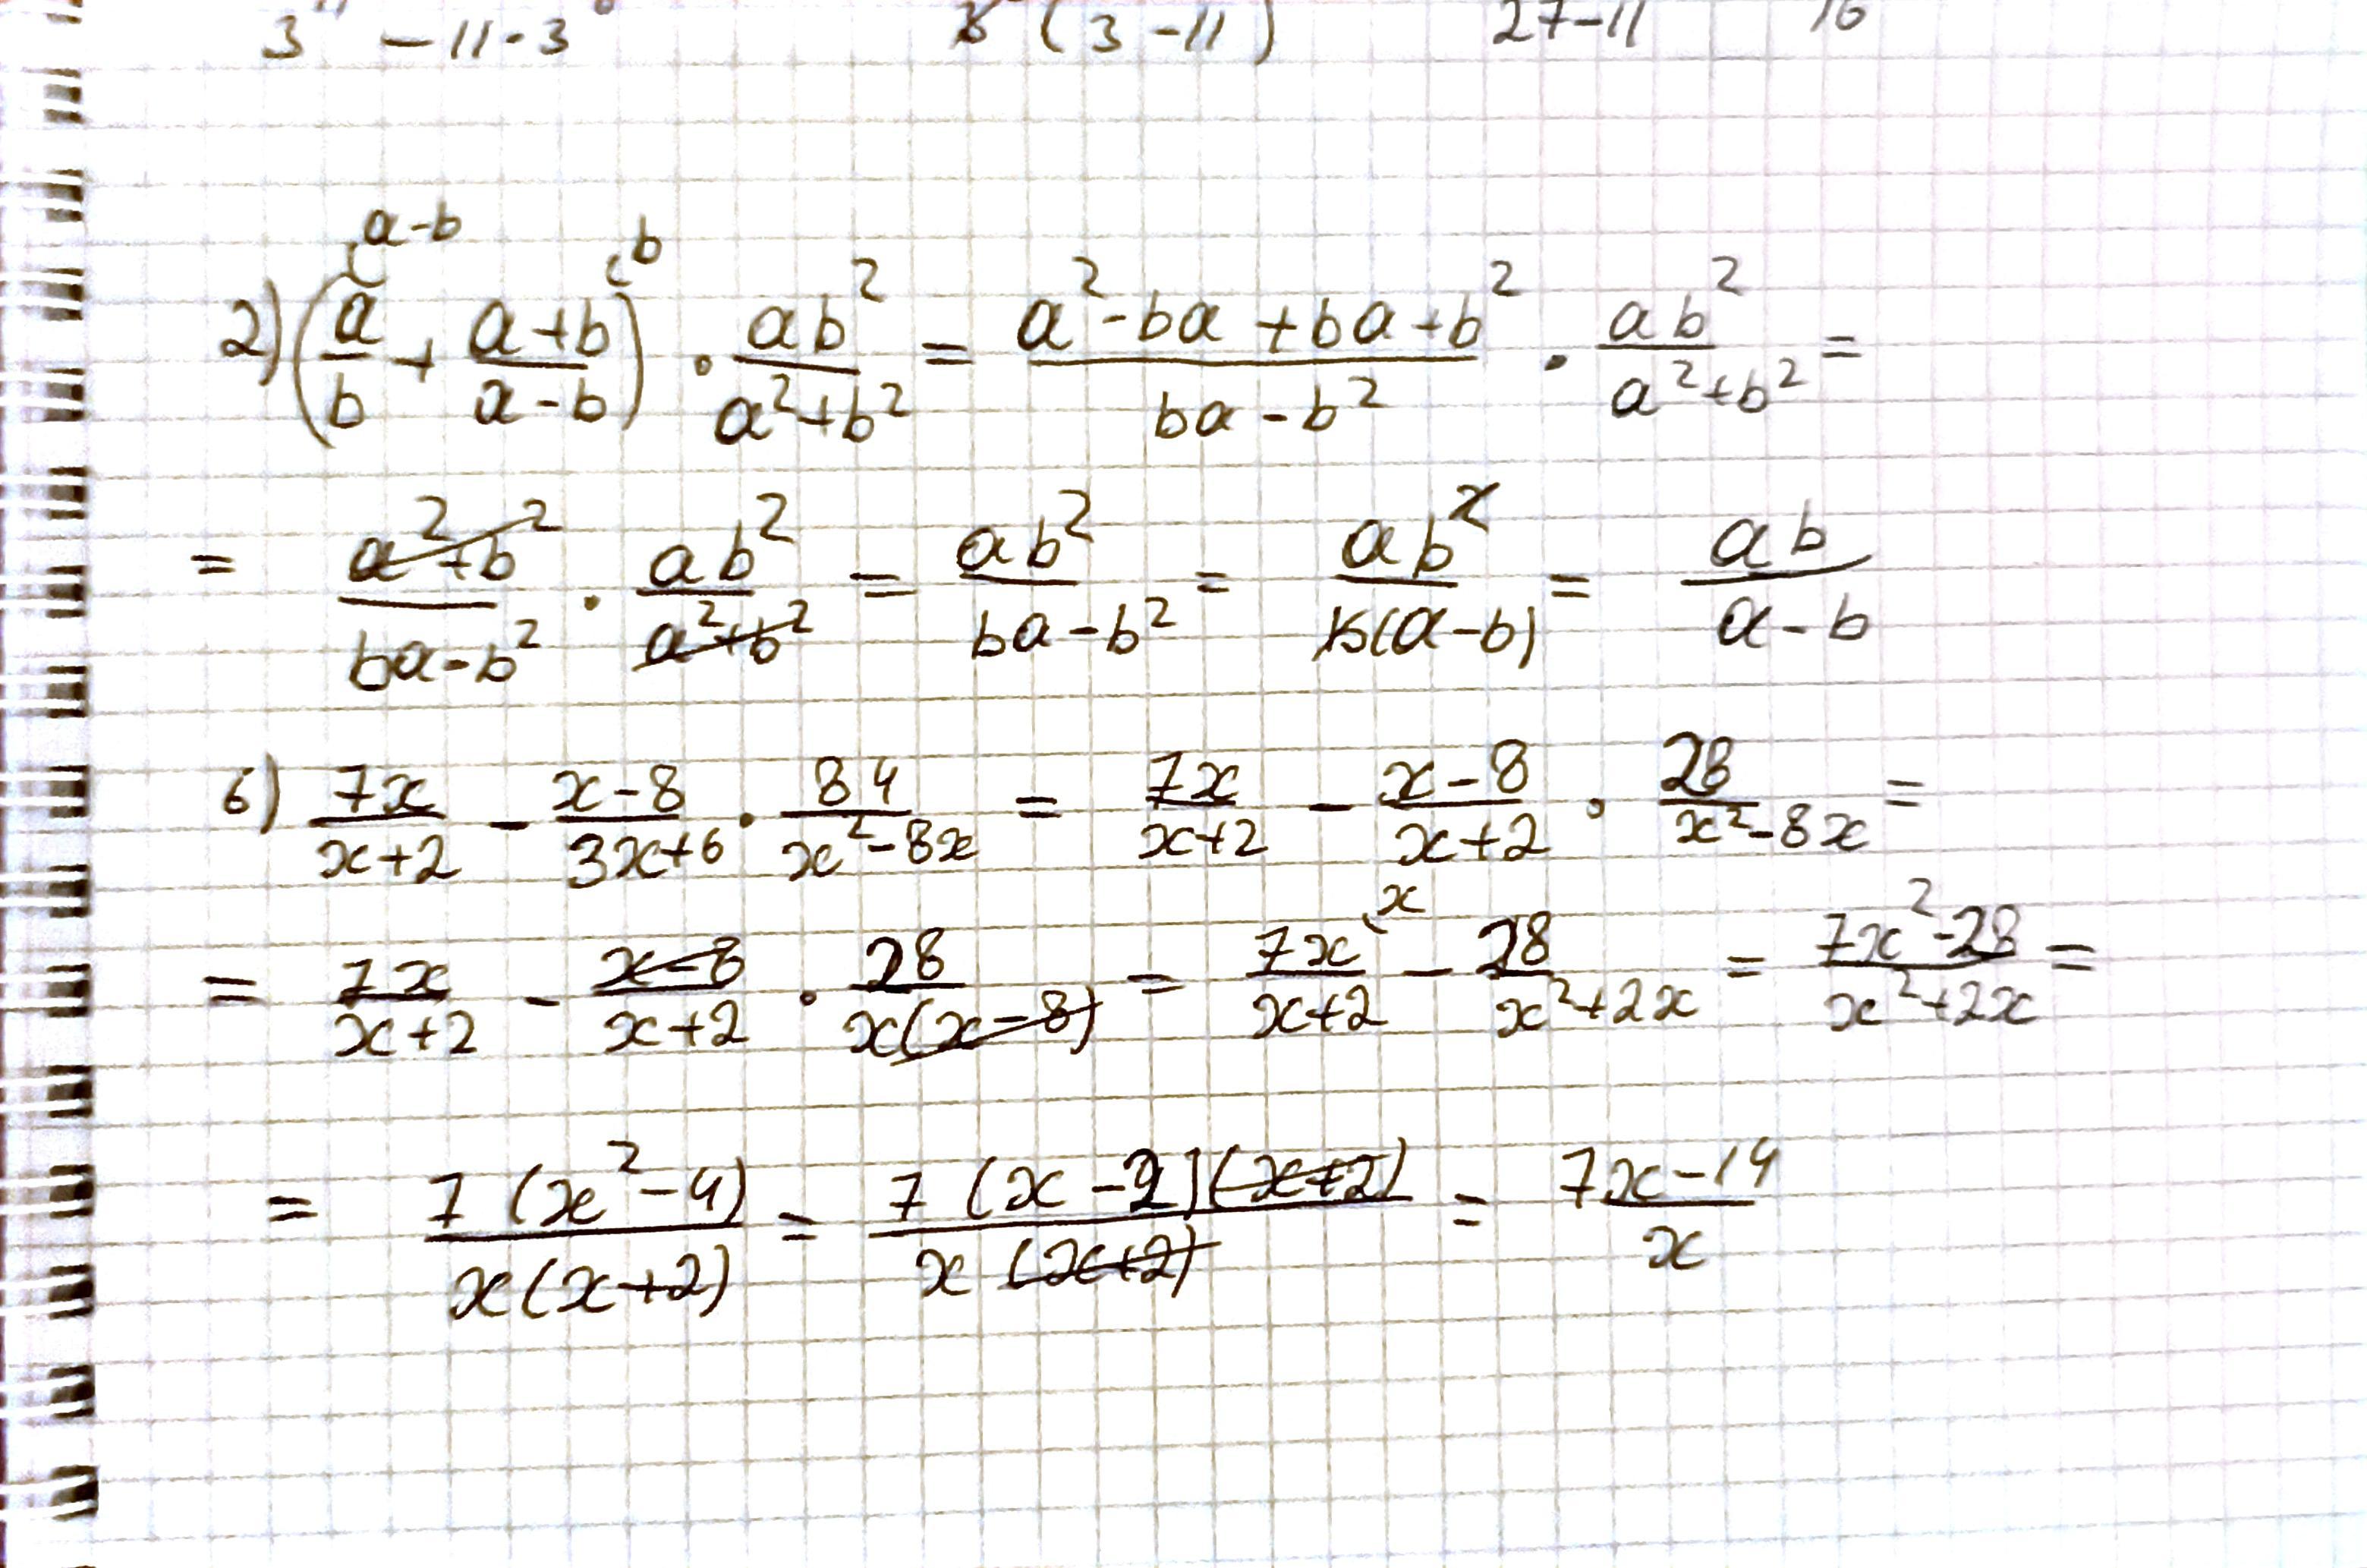 3 - 11 · 3 (3 - 11) 27 - 11 16
a-b b
2) (a/b + (a+b)/(a-b)) · ab²/(a²+b²) = (a² - ba + ba + b²)/(ba - b²) · ab²/(a²+b²) =
= (a²+b²)/(ba-b²) · ab²/(a²+b²) = ab²/(ba-b²) = ab²/(b(a-b)) = ab/(a-b)
6) 7x/(x+2) - (x-8)/(3x+6) · 84/(x²-8x) = 7x/(x+2) - (x-8)/(x+2) · 28/(x²-8x) =
x
= 7x/(x+2) - (x-8)/(x+2) · 28/(x(x-8)) = 7x/(x+2) - 28/(x²+2x) = (7x²-28)/(x²+2x) =
= 7(x²-4)/(x(x+2)) = 7(x-2)(x+2)/(x(x+2)) = (7x-14)/x